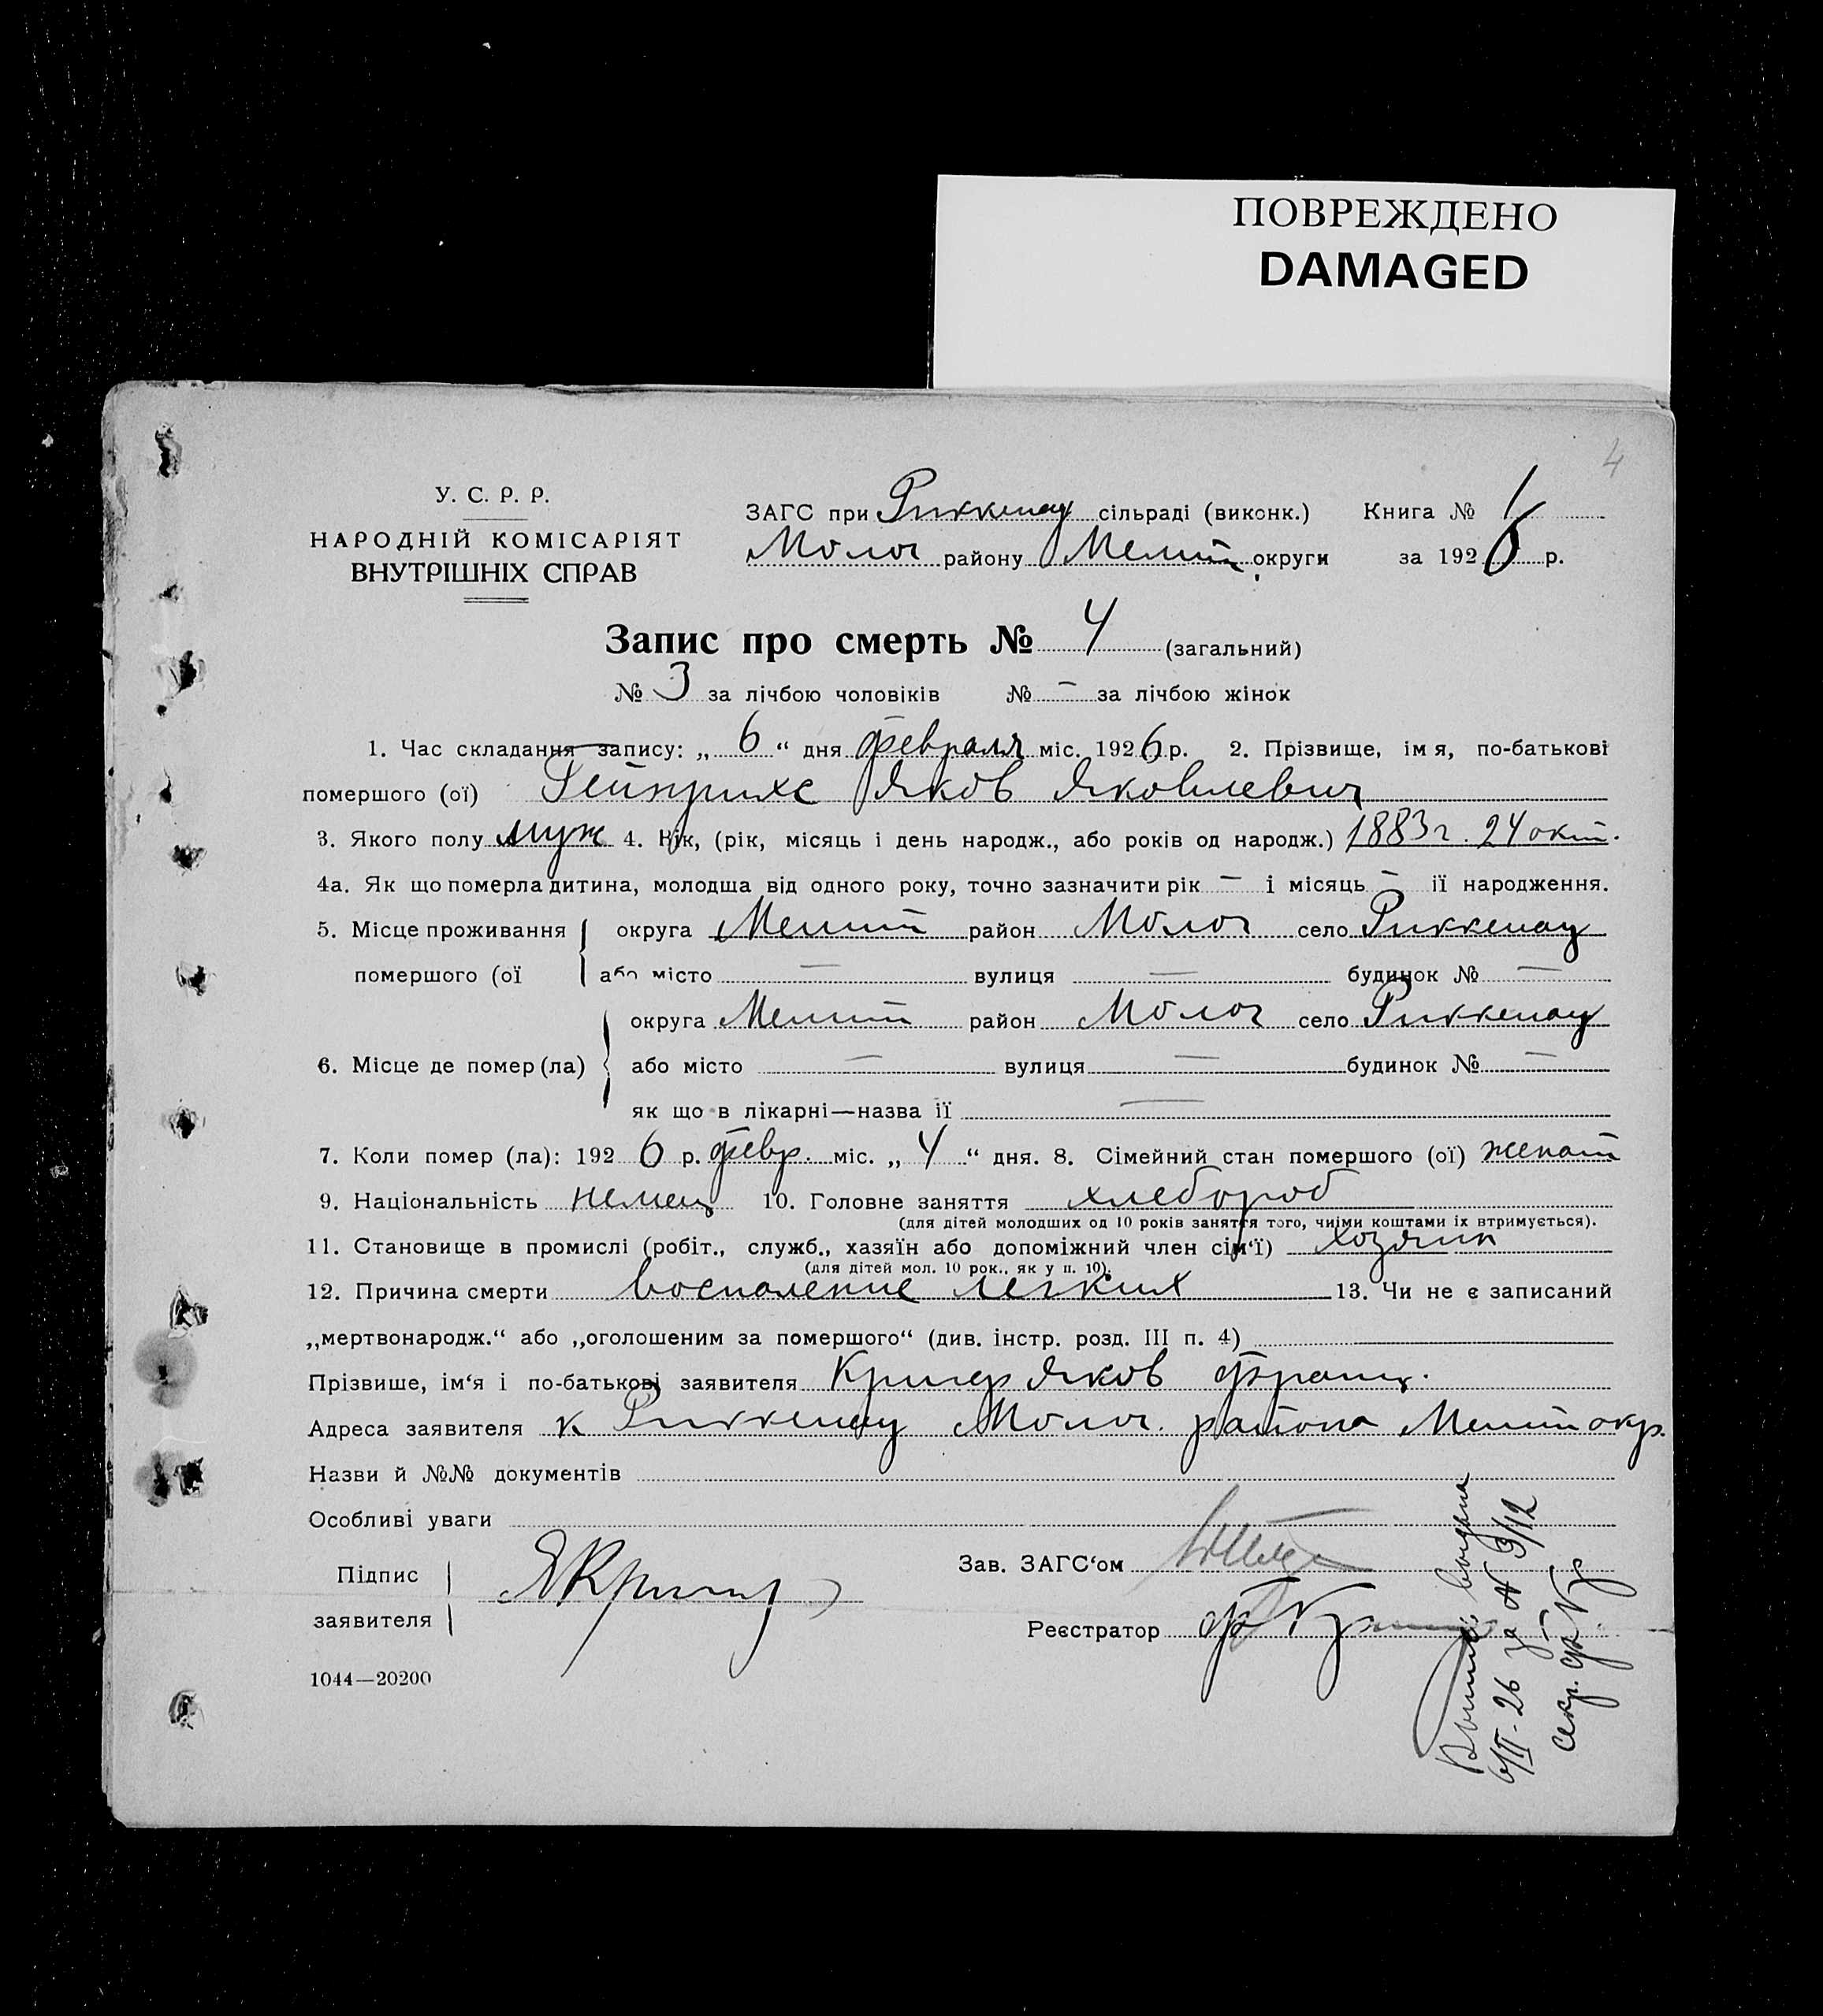 ПОВРЕЖДЕНО
DAMAGED
4
У. С. Р. Р.
НАРОДНІЙ КОМІСАРІЯТ
ВНУТРІШНІХ СПРАВ
ЗАГС при Риккенау сільраді (виконк.) Книга № 1
Молоч району Мелит округи за 1926 р.
Запис про смерть № 4 (загальний)
№ 3 за лічбою чоловіків № — за лічбою жінок
1. Час складання запису: „ 6 “ дня февраля міс. 1926 р. 2. Прізвище, імя, по-батькові
помершого (ої) Гейнрихс Яков Яковлевич
3. Якого полу муж 4. Вік, (рік, місяць і день народж., або років од народж.) 1883 г. 24 окт.
4а. Як що померла дитина, молодша від одного року, точно зазначити рік — і місяць — її народження.
5. Місце проживання округа Мелит район Молоч село Риккенау
помершого (ої або місто — вулиця — будинок № —
округа Мелит район Молоч село Риккенау
6. Місце де помер (ла) або місто — вулиця — будинок № —
як що в лікарні—назва її —
7. Коли помер (ла): 1926 р. февр. міс. „ 4 “ дня. 8. Сімейний стан помершого (ої) женат
9. Національність немец 10. Головне заняття хлебороб
(для дітей молодших од 10 років заняття того, чиїми коштами їх втримується).
11. Становище в промислі (робіт., служб., хазяїн або допоміжний член сім‘ї) хозяин
(для дітей мол. 10 рок., як у п. 10).
12. Причина смерти воспаление легких 13. Чи не є записаний
„мертвонародж.“ або „оголошеним за помершого“ (див. інстр. розд. III п. 4)
Прізвише, ім‘я і по-батькові заявителя Яков Франц.
Адреса заявителя к Риккенау Молоч. района Мелит окр.
Назви й №№ документів
Особливі уваги
Підпис
заявителя
Зав. ЗАГС‘ом
Реєстратор
1044—20200
выдана
6/II-26 за № 3/12
секр.